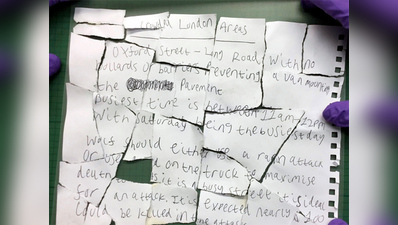 Crowded London Areas
Oxford Street - Long Road, With no
bullards or barriers preventing a van mounting
the Pavement
Busiest time is between 11am/12pm
With Saturday being the busiest day
Wats should either use a ram attack
Or use on the truck to maximise
death it is a busy street it is ideal
for an attack. It is expected nearly 100
could be killed in the attack